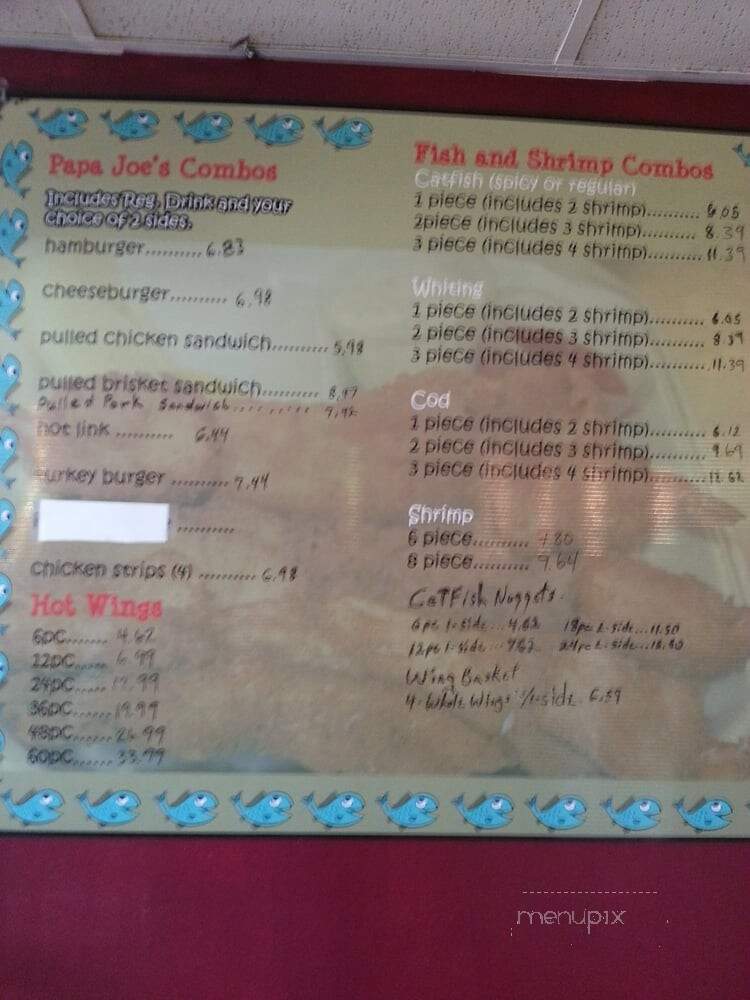 Papa Joe's Combos
Includes Reg. Drink and your
choice of 2 sides.
hamburger.......... 6.83
cheeseburger.......... 6.98
pulled chicken sandwich.......... 5.98
pulled brisket sandwich.......... 8.97
Pulled Pork Sandwich..........
hot link .......... 6.44
turkey burger .......... 7.44
..........
chicken strips (4) .......... 6.98
Hot Wings
6pc....... 4.62
12pc...... 6.99
24pc......
36pc....... 19.99
48pc...... 26.99
60pc....... 33.99
Fish and Shrimp Combos
Catfish (spicy or regular)
1 piece (includes 2 shrimp).......... 6.05
2piece (includes 3 shrimp).......... 8.39
3 piece (includes 4 shrimp).......... 11.39
Whiting
1 piece (includes 2 shrimp).......... 6.05
2 piece (includes 3 shrimp).......... 8.39
3 piece (includes 4 shrimp).......... 11.39
Cod
1 piece (includes 2 shrimp).......... 6.12
2 piece (includes 3 shrimp).......... 9.69
3 piece (includes 4 shrimp).......... 12.62
Shrimp
6 piece.......... 7.80
8 piece.......... 9.64
CatFish Nuggets.
6pc 1-side... 4.62 18pc 2-side...11.50
12pc 1-side... 24pc 2-side...
Wing Basket
4-Whole Wings 1-side 6.59
menupix